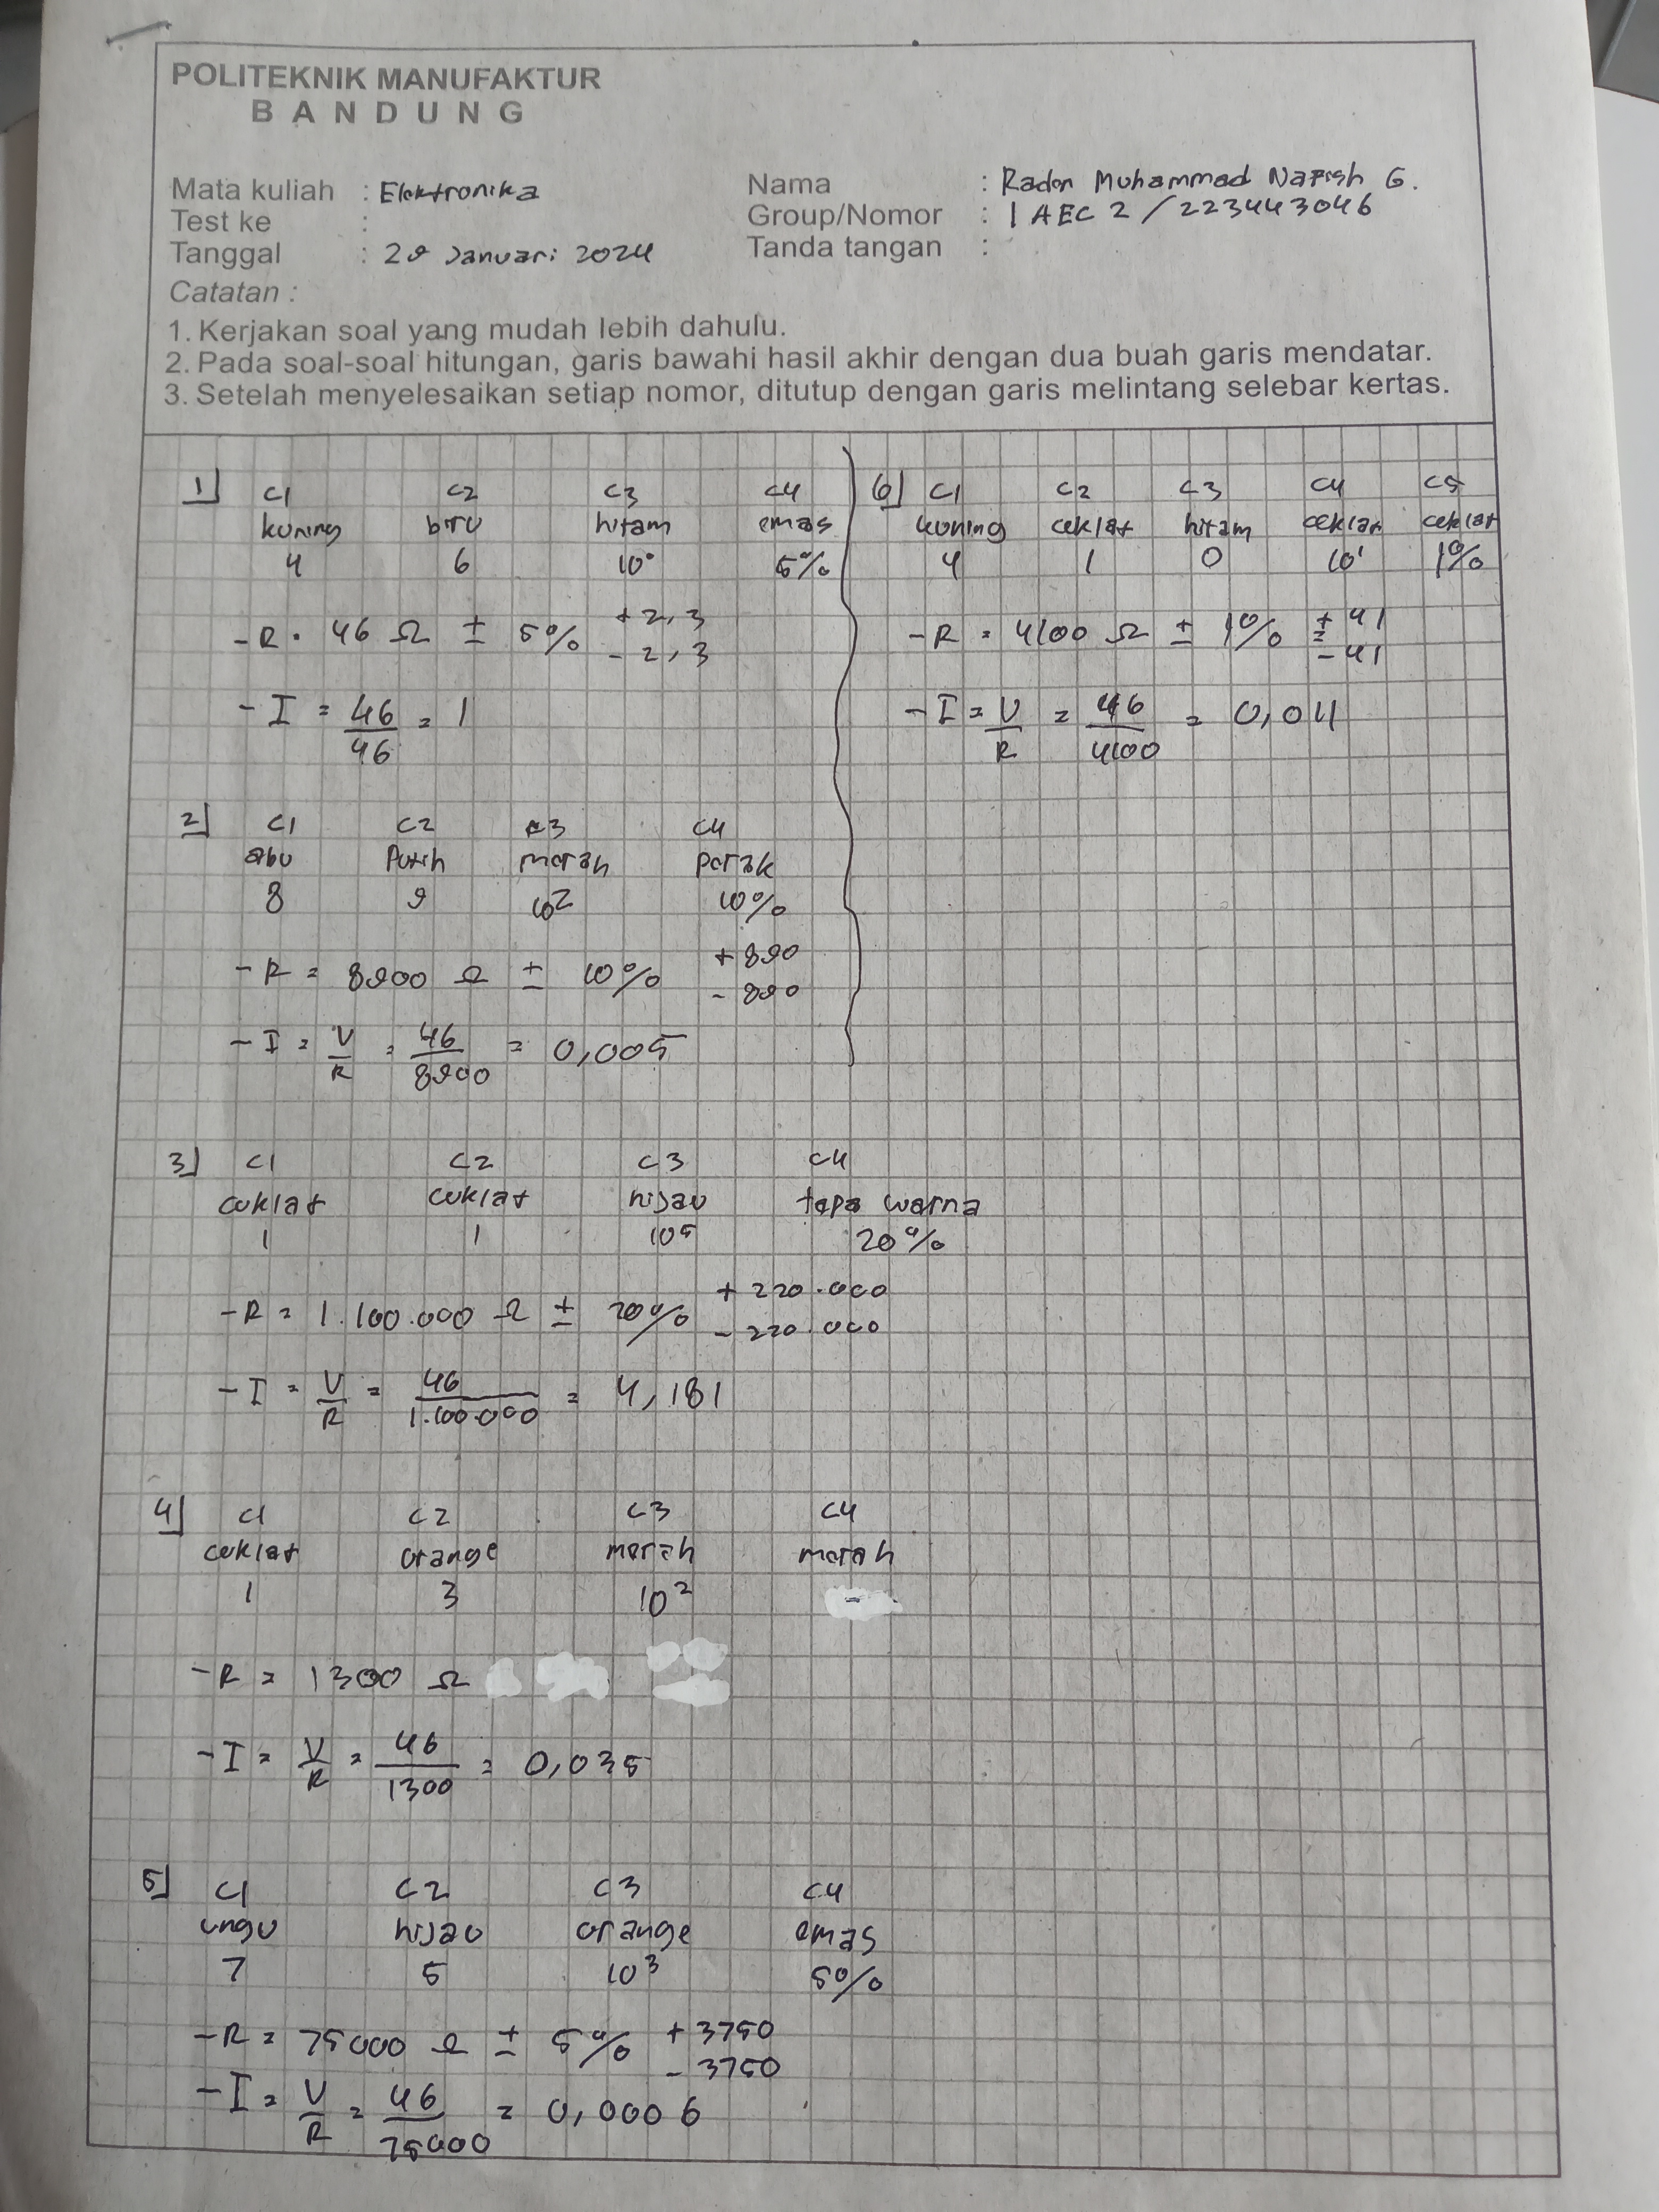 POLITEKNIK MANUFAKTUR
BANDUNG
Mata kuliah : Elektronika
Test ke :
Tanggal : 29 Januari 2024
Nama : Raden Muhammad Nafish G.
Group/Nomor : 1 AEC 2 / 223443046
Tanda tangan :
Catatan :
1. Kerjakan soal yang mudah lebih dahulu.
2. Pada soal-soal hitungan, garis bawahi hasil akhir dengan dua buah garis mendatar.
3. Setelah menyelesaikan setiap nomor, ditutup dengan garis melintang selebar kertas.
1] C1 C2 C3 C4
kuning biru hitam emas
4 6 10⁰ 5%
- R = 46 Ω ± 5% + 2,3
- 2,3
- I = 46/46 = 1
2] C1 C2 C3 C4
abu Putih merah perak
8 9 10² 10%
- R = 8900 Ω ± 10% + 890
- 890
- I = V/R = 46/8900 = 0,005
3] C1 C2 C3 C4
coklat coklat hijau tapa warna
1 1 10⁵ 20%
- R = 1.100.000 Ω ± 20% + 220.000
- 220.000
- I = V/R = 46/1.100.000 = 4,181
4] C1 C2 C3 C4
coklat orange merah merah
1 3 10² -
- R = 1300 Ω
- I = V/R = 46/1300 = 0,035
5] C1 C2 C3 C4
ungu hijau orange emas
7 5 10³ 5%
- R = 75000 Ω ± 5% + 3750
- 3750
- I = V/R = 46/75000 = 0,0006
6] C1 C2 C3 C4 C5
kuning coklat hitam coklat coklat
4 1 0 10¹ 1%
- R = 4100 Ω ± 1% = + 41
- 41
- I = V/R = 46/4100 = 0,011